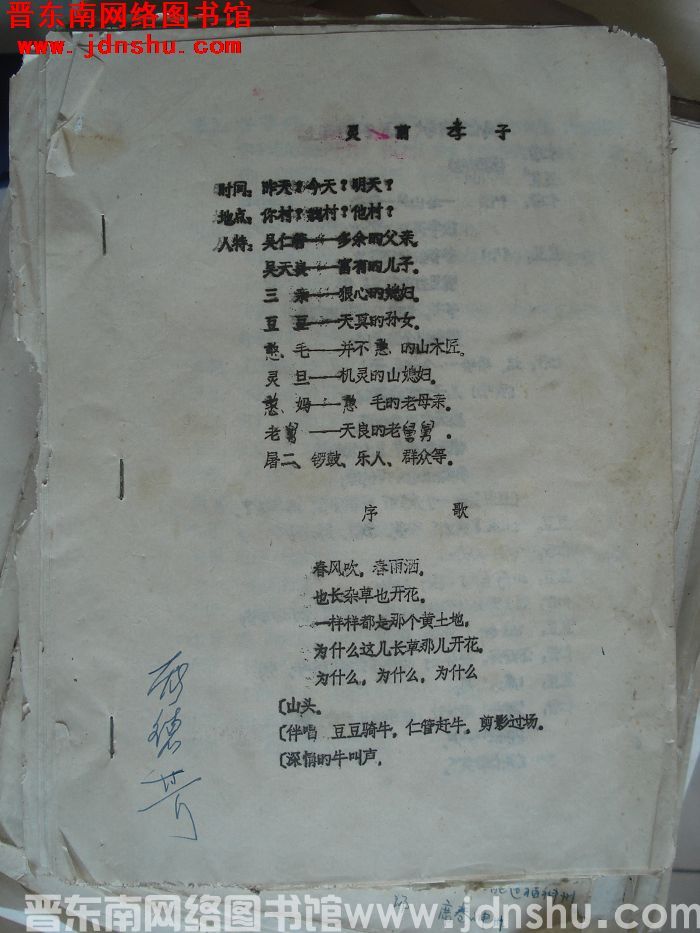 晋东南网络图书馆
www.jdnshu.com
灵前孝子
时间：昨天？今天？明天？
地点：你村？我村？他村？
人特：吴仁管——多余的父亲。
吴天良——富有的儿子。
三 亲——狠心的媳妇。
豆 豆——天真的孙女。
憨 毛——并不憨的山木匠。
灵 旦——机灵的山媳妇。
憨 妈——憨 毛的老母亲。
老 舅——天良的老舅舅。
屠二、锣鼓、乐人、群众等。
序 歌
春风吹，春雨洒，
也长杂草也开花。
一样样都是那个黄土地，
为什么这儿长草那儿开花。
为什么，为什么，为什么
〔山头。
〔伴唱 豆豆骑牛，仁管赶牛，剪影过场。
〔深情的牛叫声。
晋东南网络图书馆 www.jdnshu.com